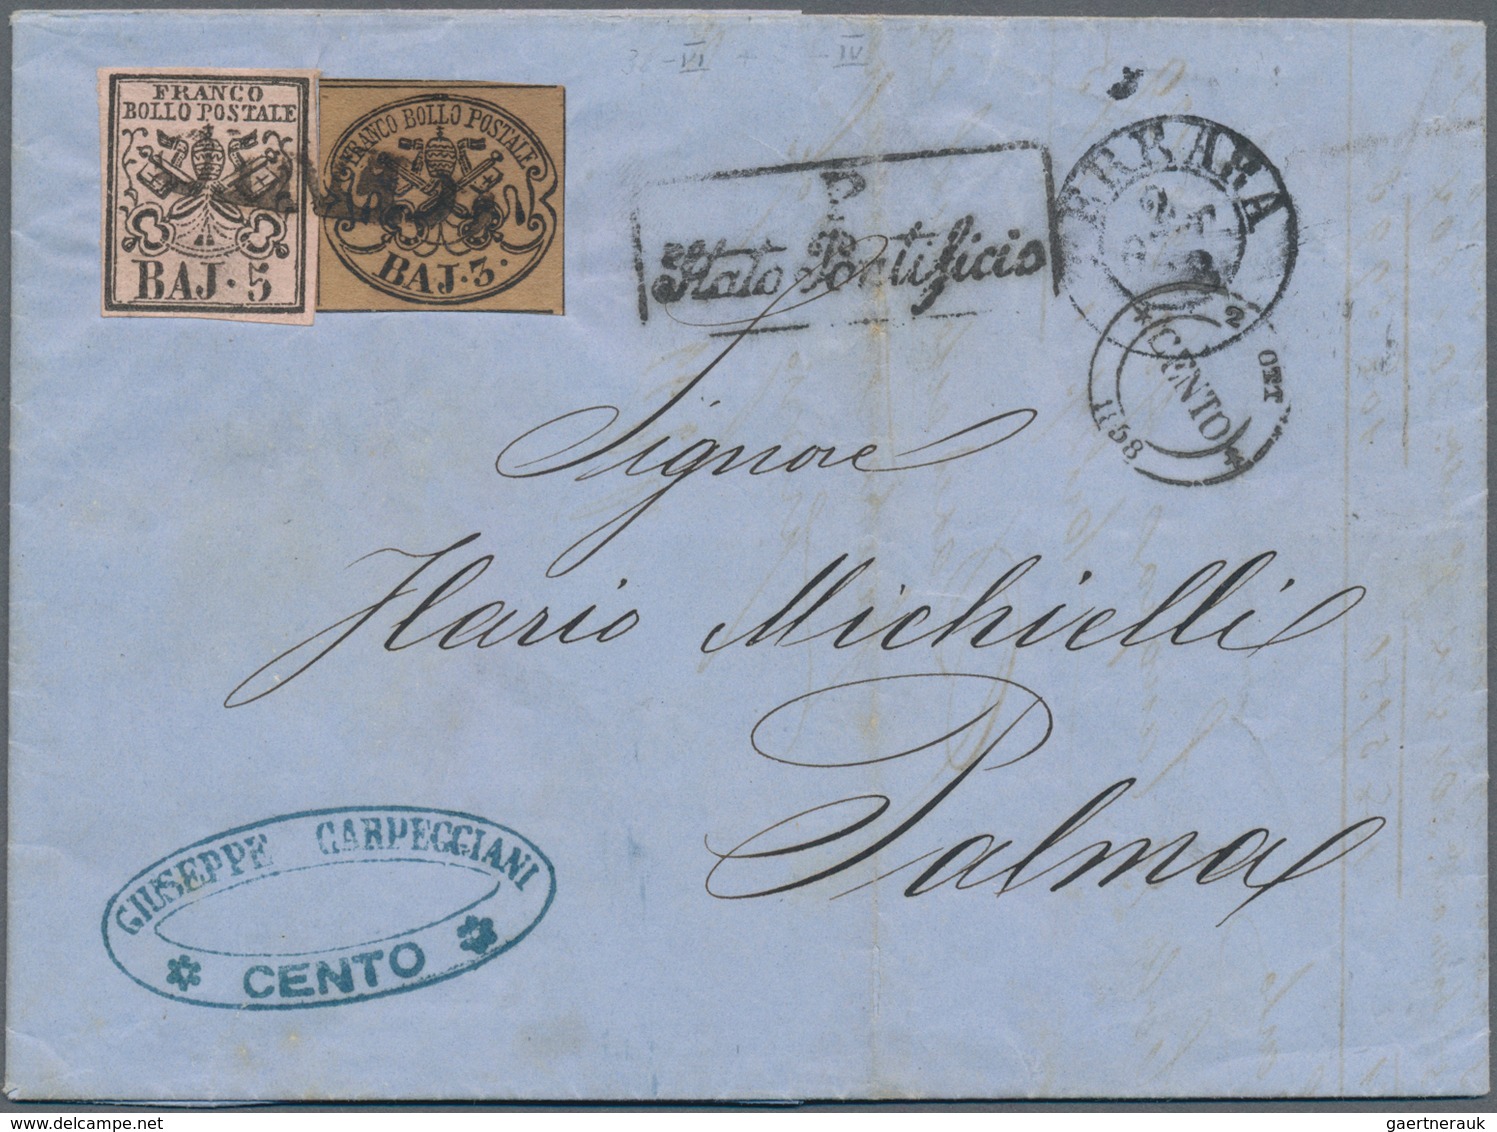 FRANCO
BOLLO POSTALE
BAJ. 5
FRANCO BOLLO POSTALE
BAJ. 3.
Stato Pontificio
FERRARA
2
OTT
* CENTO *
2 OTT
1858
Signore
Ilario Michielli
Palma
GIUSEPPE CARPEGGIANI
CENTO
delcampe.net
gaertnerauk